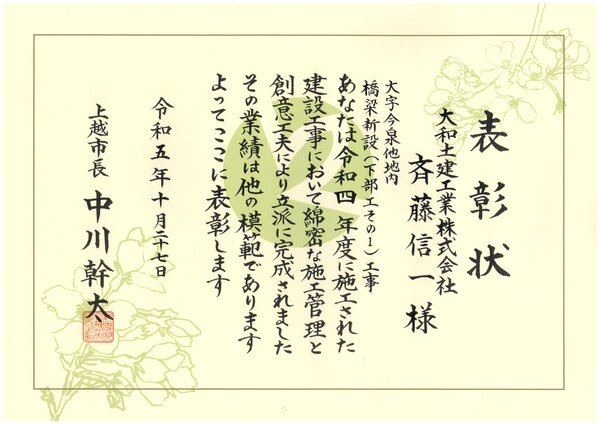 表彰状
大和土建工業株式会社
斉藤信一様
大字今泉他地内
橋梁新設(下部工その1)工事
あなたは令和四年度に施工された
建設工事において綿密な施工管理と
創意工夫により立派に完成されました
その業績は他の模範であります
よってここに表彰します
令和五年十月二十七日
上越市長 中川幹太